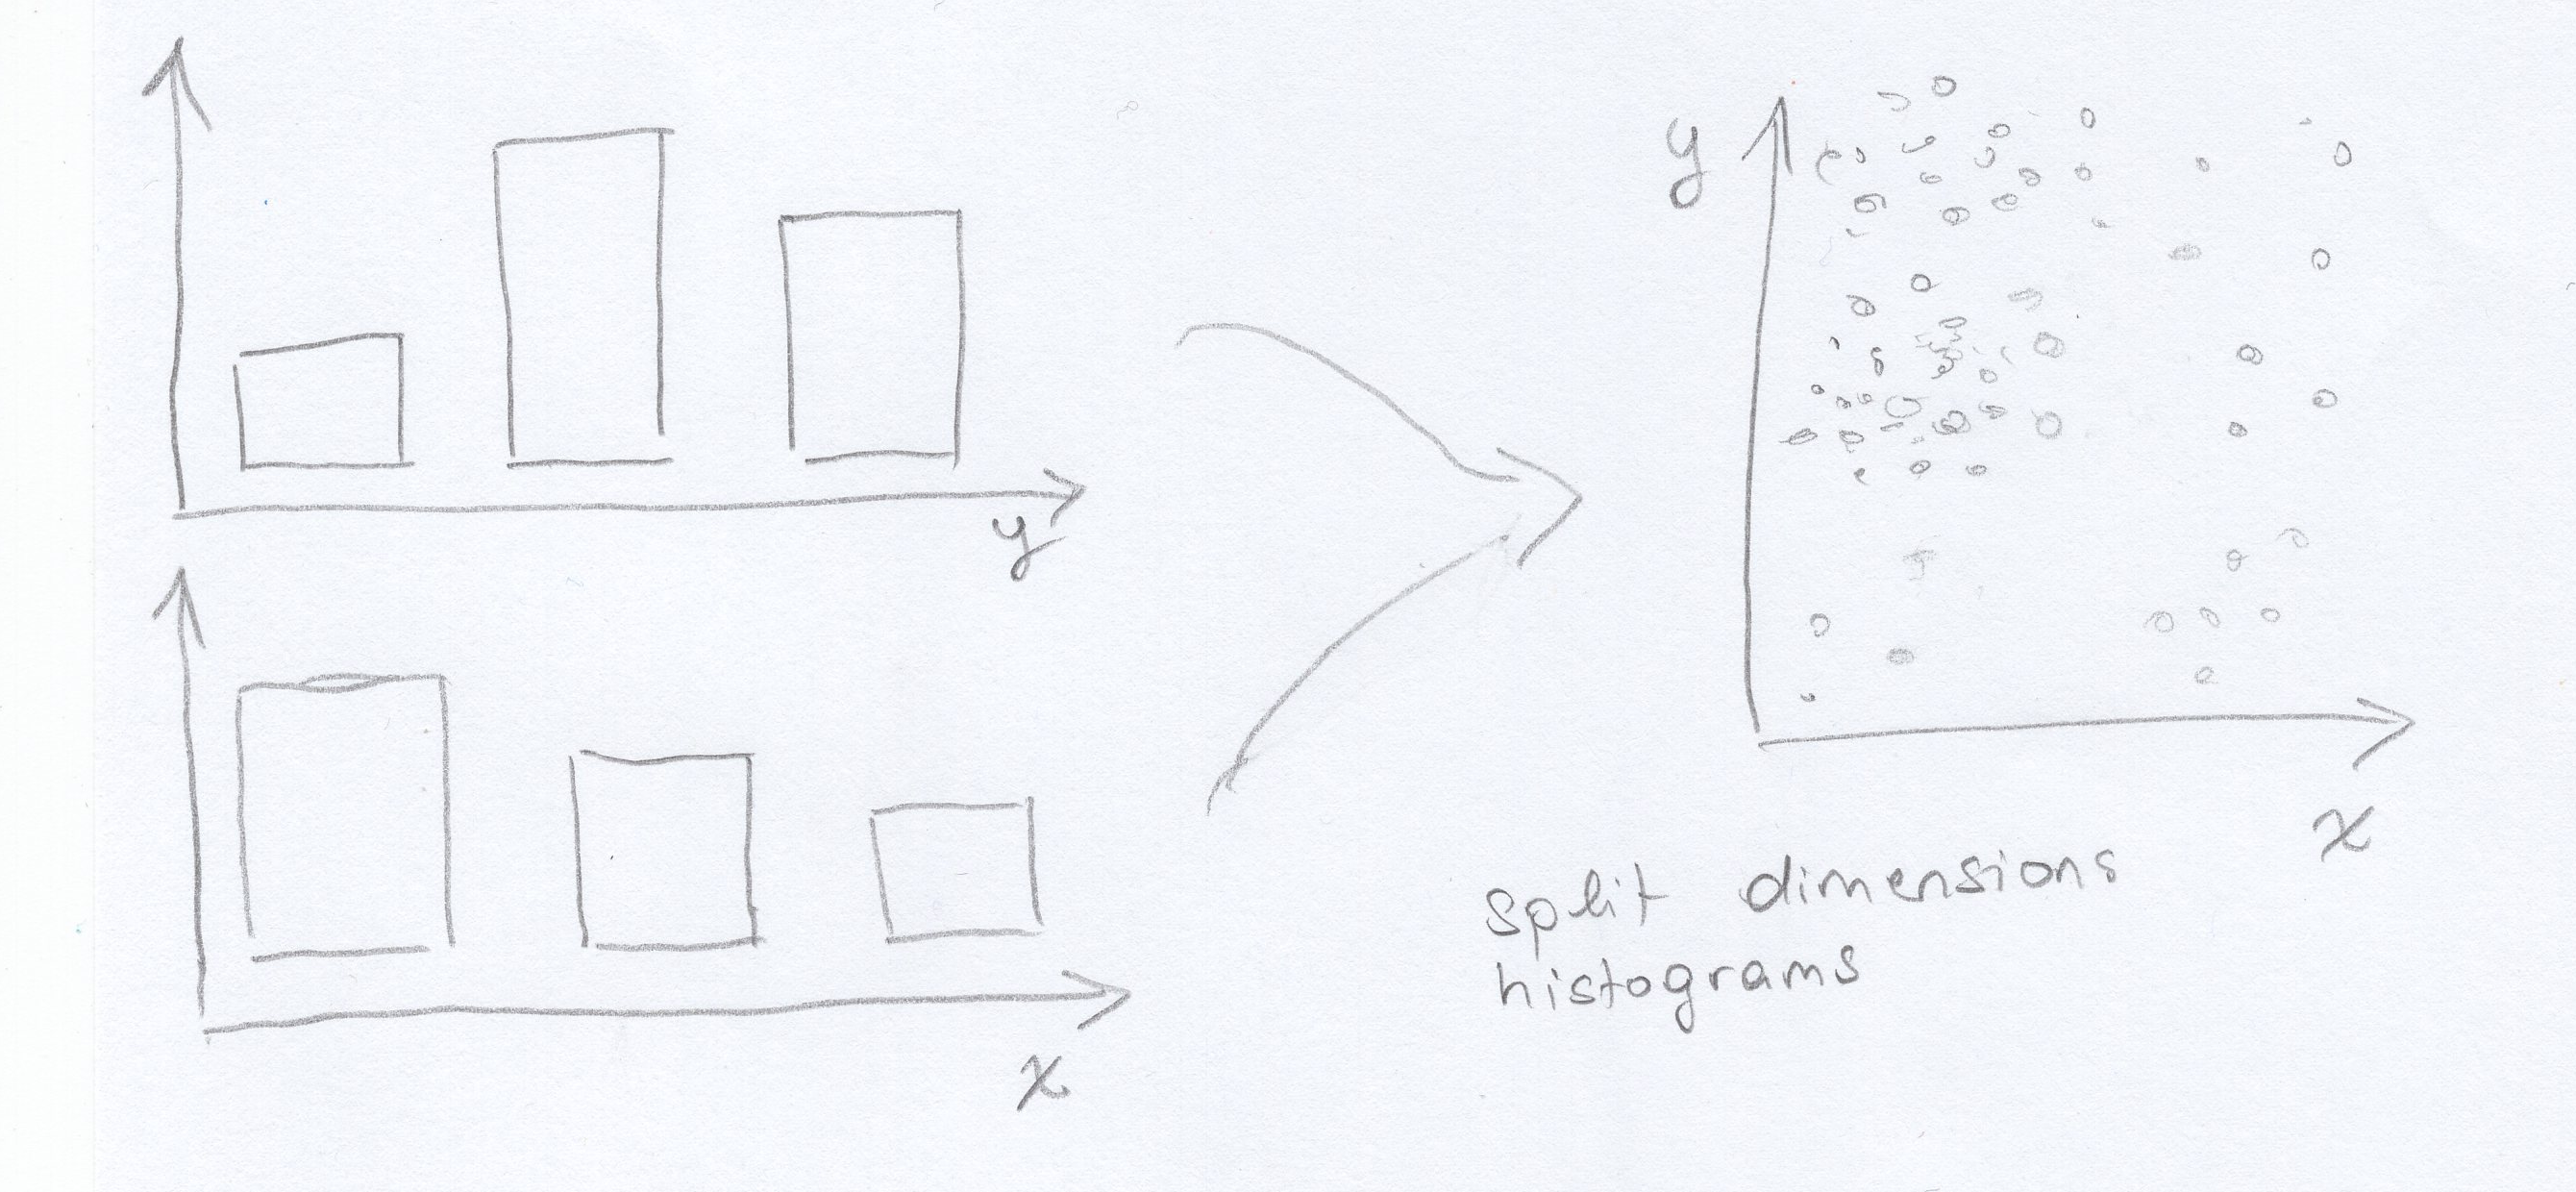 y
x
y
x
split dimensions
histograms